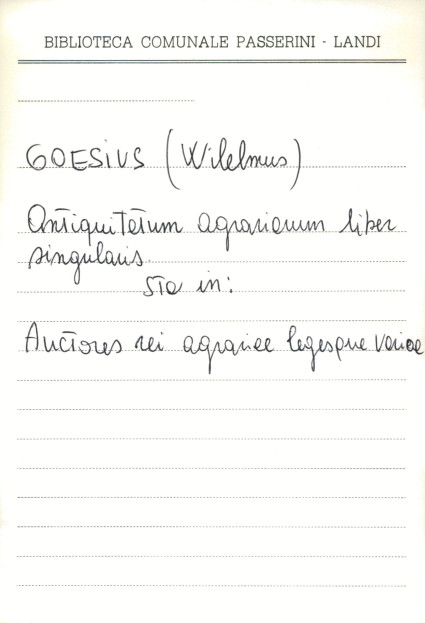 BIBLIOTECA COMUNALE PASSERINI - LANDI
GOESIUS (Wilelmus)
Antiquitatum agrariarum liber
singularis.
Sta in:
Auctores rei agrariae legesque variae